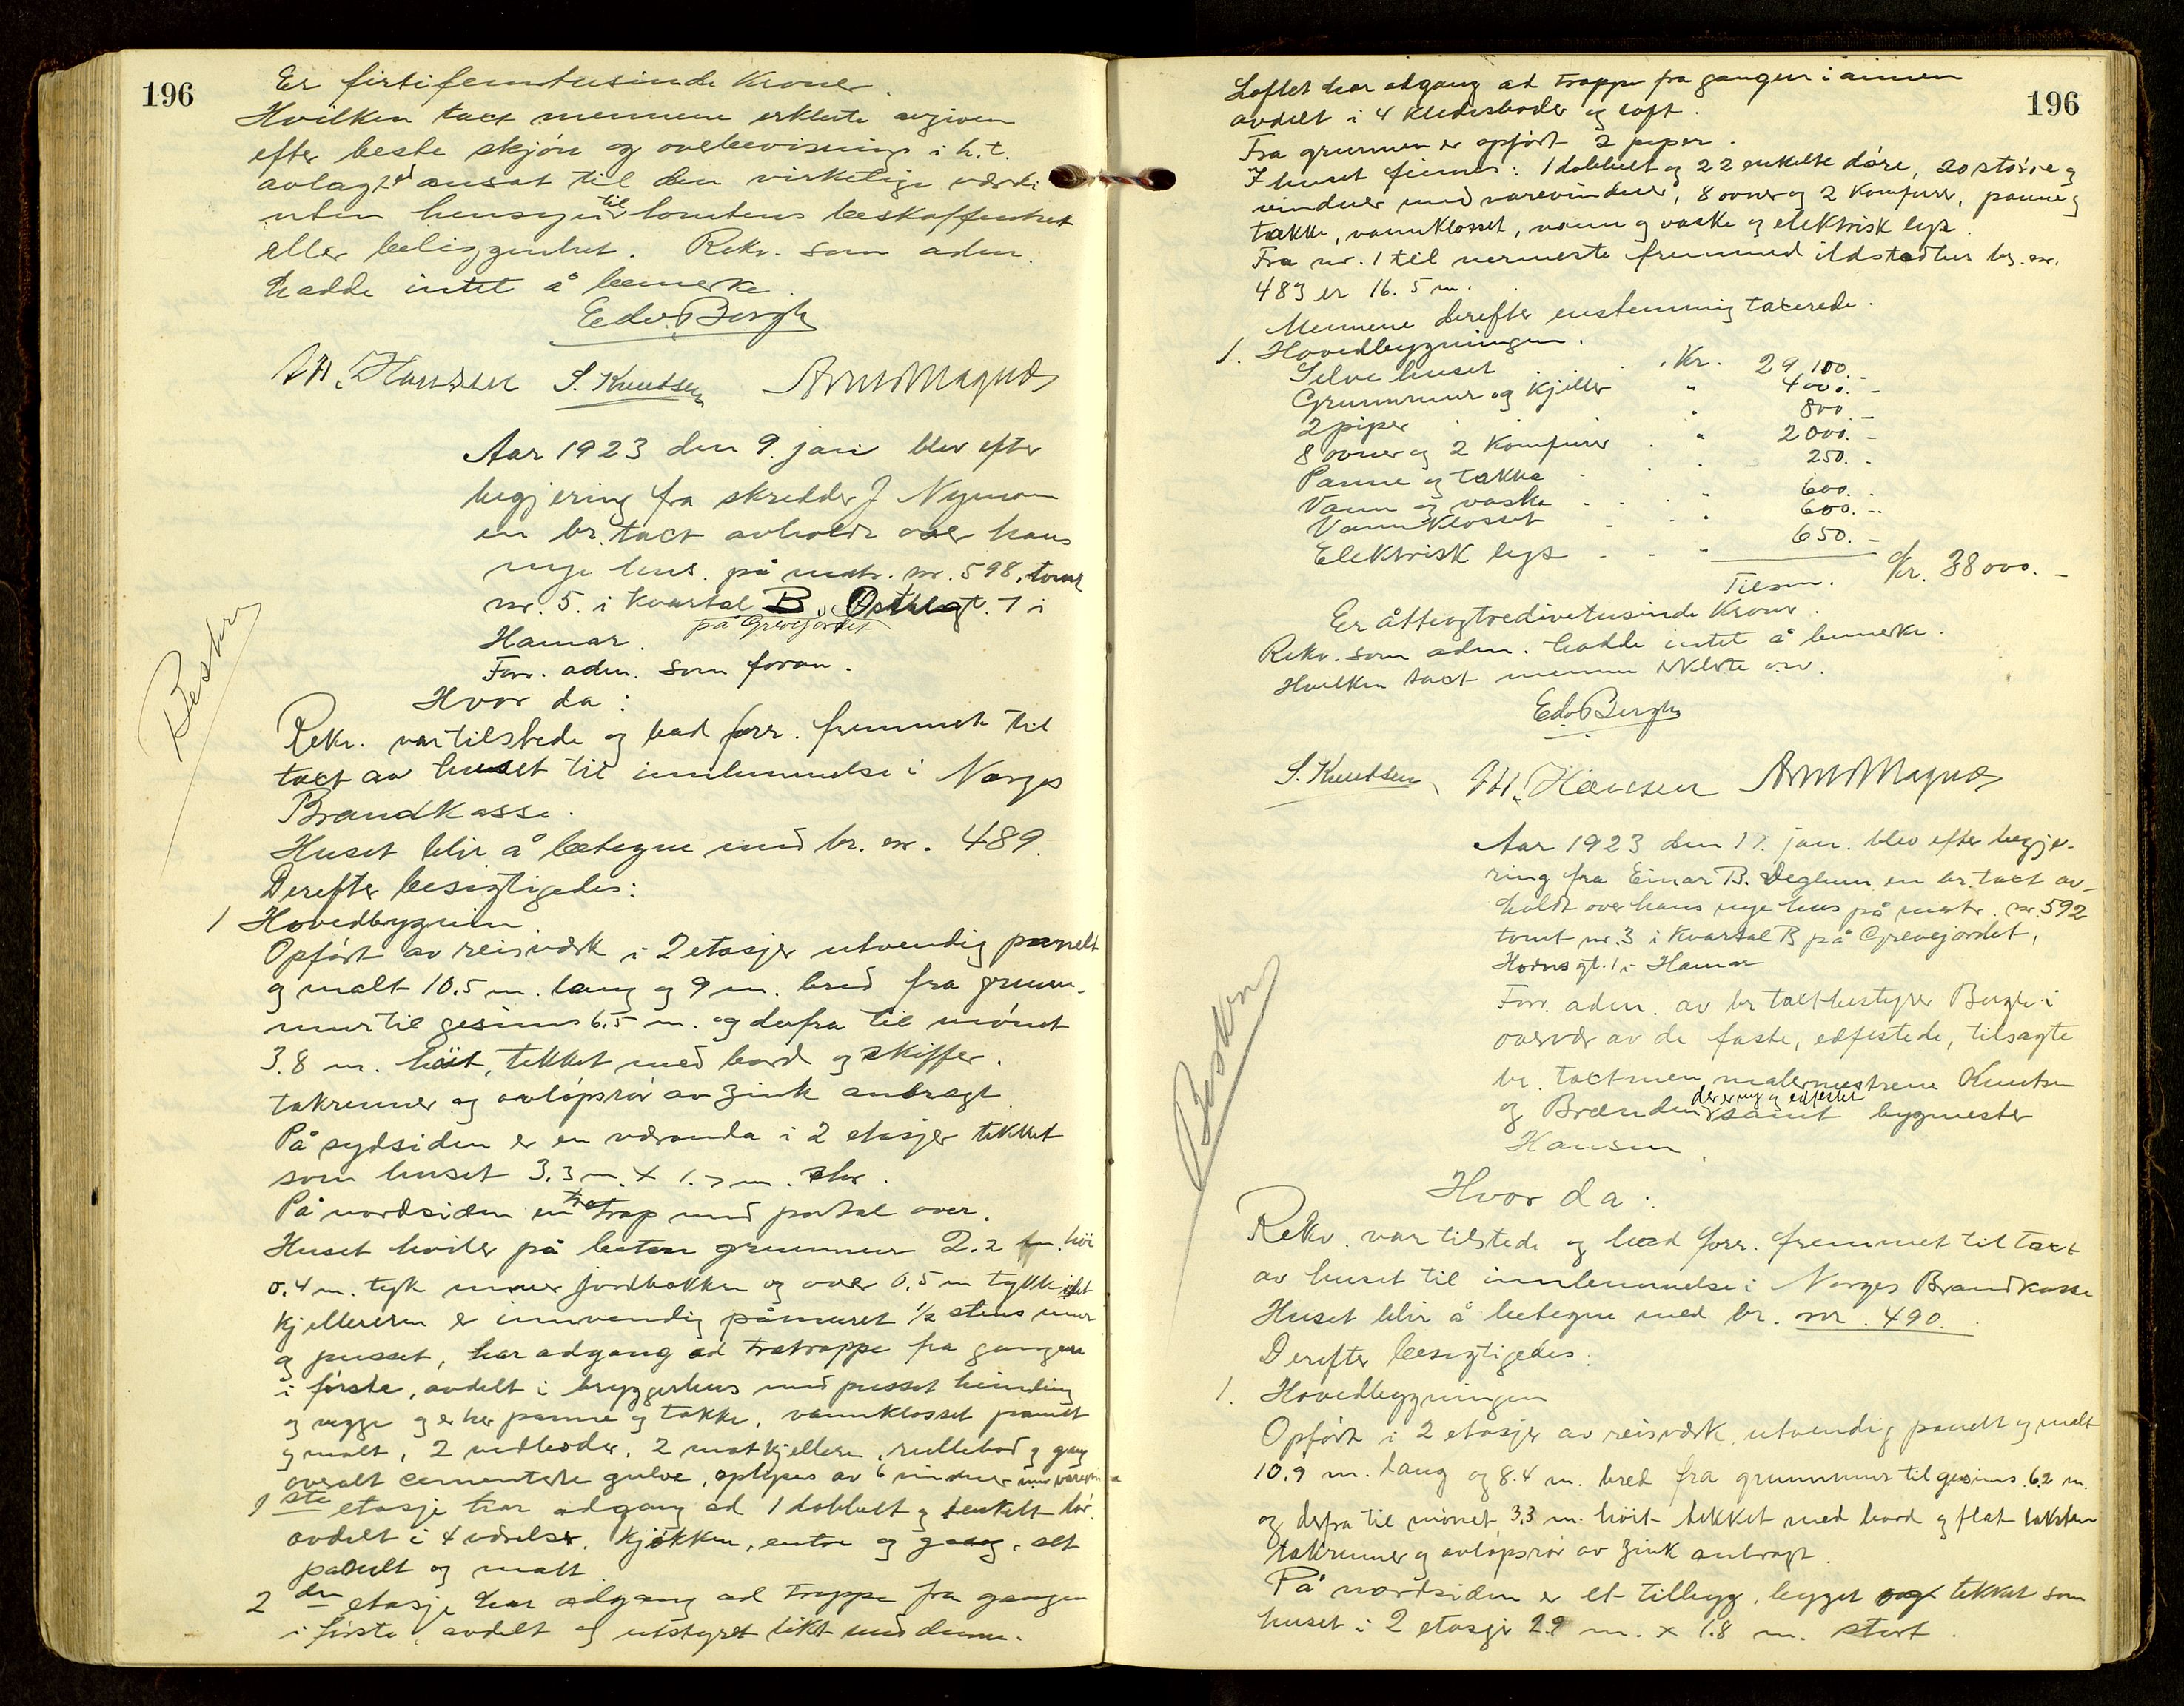 196
Er firtifemtusinde Kroner.
Hvilken taxt mennene erklerte avgiven
efter beste skjøn og overbevisning i h.t.
avlagt ed ansat til den virkelige værdi
uten hensyn til tomtens beskaffenhet
eller beliggenhet. Rekv. som aden.
hadde intet å bemerke.
Edv. Bergh
Hansen S. Knutsen Arne Magnus
Aar 1923 den 9. jan blev efter
begjering fra skredder J Nyman
en br. taxt avholdt over hans
nye hus på matr. nr. 598, tomt
nr. 5. i Kvartal B, Østregt. 7 i
på Grevejordet
Hamar.
Forr. adm. som foran.
Hvor da:
Beskrv
Rekv. var tilstede og bad forr. fremmet til
taxt av huset til innlemmelse i Norges
Brandkasse.
Huset blir å betegne med br. nr. 489.
Derefter besigtigedes:
1 Hovedbygnin.
Opført av reisværk i 2 etasjer utvendig panelt
og malt 10.5 m. lang og 9 m. bred fra grunn-
mur til gesims 6.5 m. og derfra til mønet
3.8 m. høit, tekket med bord og skiffer.
takrenner og avløpsrør av zink anbragt
På sydsiden er en væranda i 2 etasjer tekket
som huset 3.3 m. x 1.7 m. stor.
På nordsiden en tretrap med portal over.
Huset hviler på beton grunnmur 2.2 m. høi
0.4 m. tyk under jordbakken og over 0.5 m tykk idet
kjelleren er innvendig påmuret 1/2 stens mur
og pusset, har adgang ad tretrappe fra gangen
i første, avdelt i bryggerhus med pusset himling
og vegge og er her panne og takke, vannklosset panelt
og malt, 2 vedboder, 2 matkjellere, rullebod og gang
overalt cementerte gulve, oplyses av 6 vinduer med varevin
1 ste etasje har adgang ad 1 dobbelt og 1 enkelt dør.
avdelt i 4 værelser, kjøkken, entre og gang, alt
panelt og malt
2 den etasje har adgang ad trappe fra gangen
i første, avdelt og utstyret likt med denne.
196
Loftet har adgang ad trappe fra gangen i annen
avdelt i 4 kledesboder og loft.
Fra grunnen er opført 2 piper.
I huset finnes: 1 dobbelt og 22 enkelte døre, 20 større og
vinduer med varevinduer, 8 ovner og 2 Komfurer, panne og
takke, vannklosset, vann og vaske og elektrisk lys.
Fra nr. 1 til nermeste fremmed ildsted hus br. nr.
483 er 16.5 m.
Mennene derefter enstemmig taxerede.
1. Hovedbygningen.
Selve huset . . Kr. 29 100.-
Grunnmur og kjeller " 4000.-
2 piper " 800.-
8 ovner og 2 Komfurer " 2000.-
Panne og takke " 250.-
Vann og vaske " 600.-
Vannklosset " 600.-
Elektrisk lys " 650.-
Tilsm. Kr. 38 000.-
Er åtteogtredivetusinde Kroner.
Rekv. som aden. hadde intet å bemerke.
Hvilken taxt mennene erklerte osv.
Edv Bergh
S. Knutsen Hansen Arne Magnus
Aar 1923 den 17. jan. blev efter begje-
ring fra Einar B. Deglum en br. taxt av-
holdt over hans nye hus på matr. nr. 592
tomt nr. 3 i Kvartal B på Grevejordet,
Hornsgt. 1 i Hamar
Forr. adm. av br taxtbestyrer Bergh i
overvær av de faste, edfestede, tilsagte
br. taxtmen, malermestrene Knutsen
og Brænden, der er ny og edfestet samt bygmester
Hansen.
Hvor da:
Beskrv
Rekv. var tilstede og bad forr. fremmet til taxt
av huset til innlemmelse i Norges Brandkasse
Huset blir å betegne med br. nr. 490.
Derefter besigtigedes:
1. Hovedbygningen
Opført i 2 etasjer av reisværk, utvendig panelt og malt
10.9 m. lang og 8.4 m. bred fra grunnmur til gesims 6.2 m.
og derfra til mønet 3.3 m. høit tekket med bord og flat taksten
takrenner og avløpsrør av zink anbragt.
På nordsiden er et tilbygg, bygget og tekket som
huset i 2 etasje 2.9 m. x 1.8 m. stort.